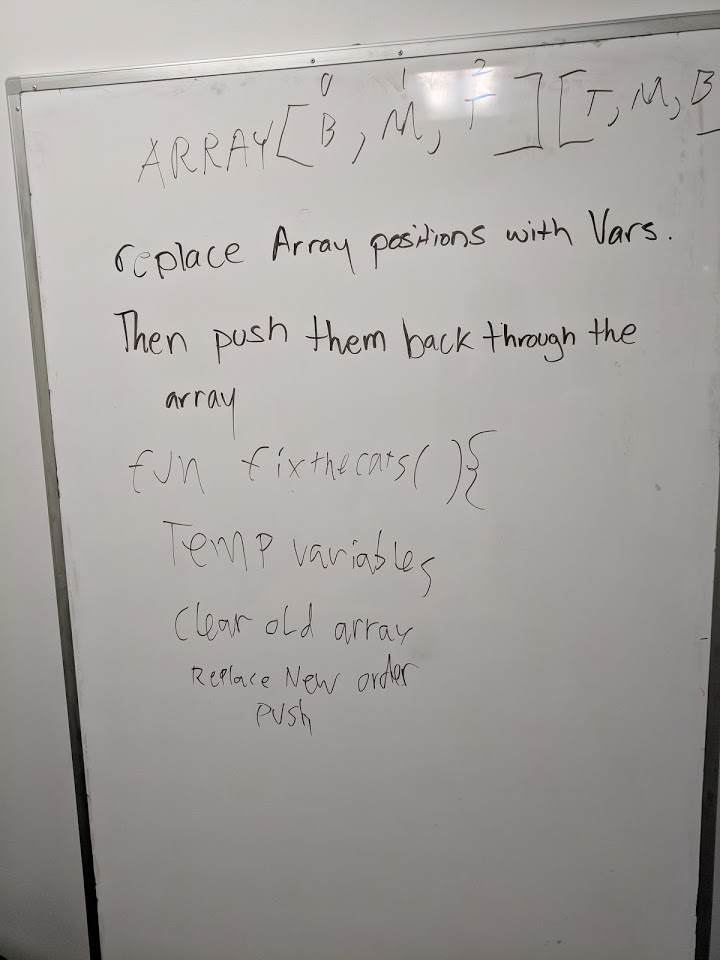 0 1 2
ARRAY[B, M, T][T, M, B]
replace Array positions with Vars.
Then push them back through the
array
fun fixthecats(){
Temp variables
Clear old array
Replace New order
push